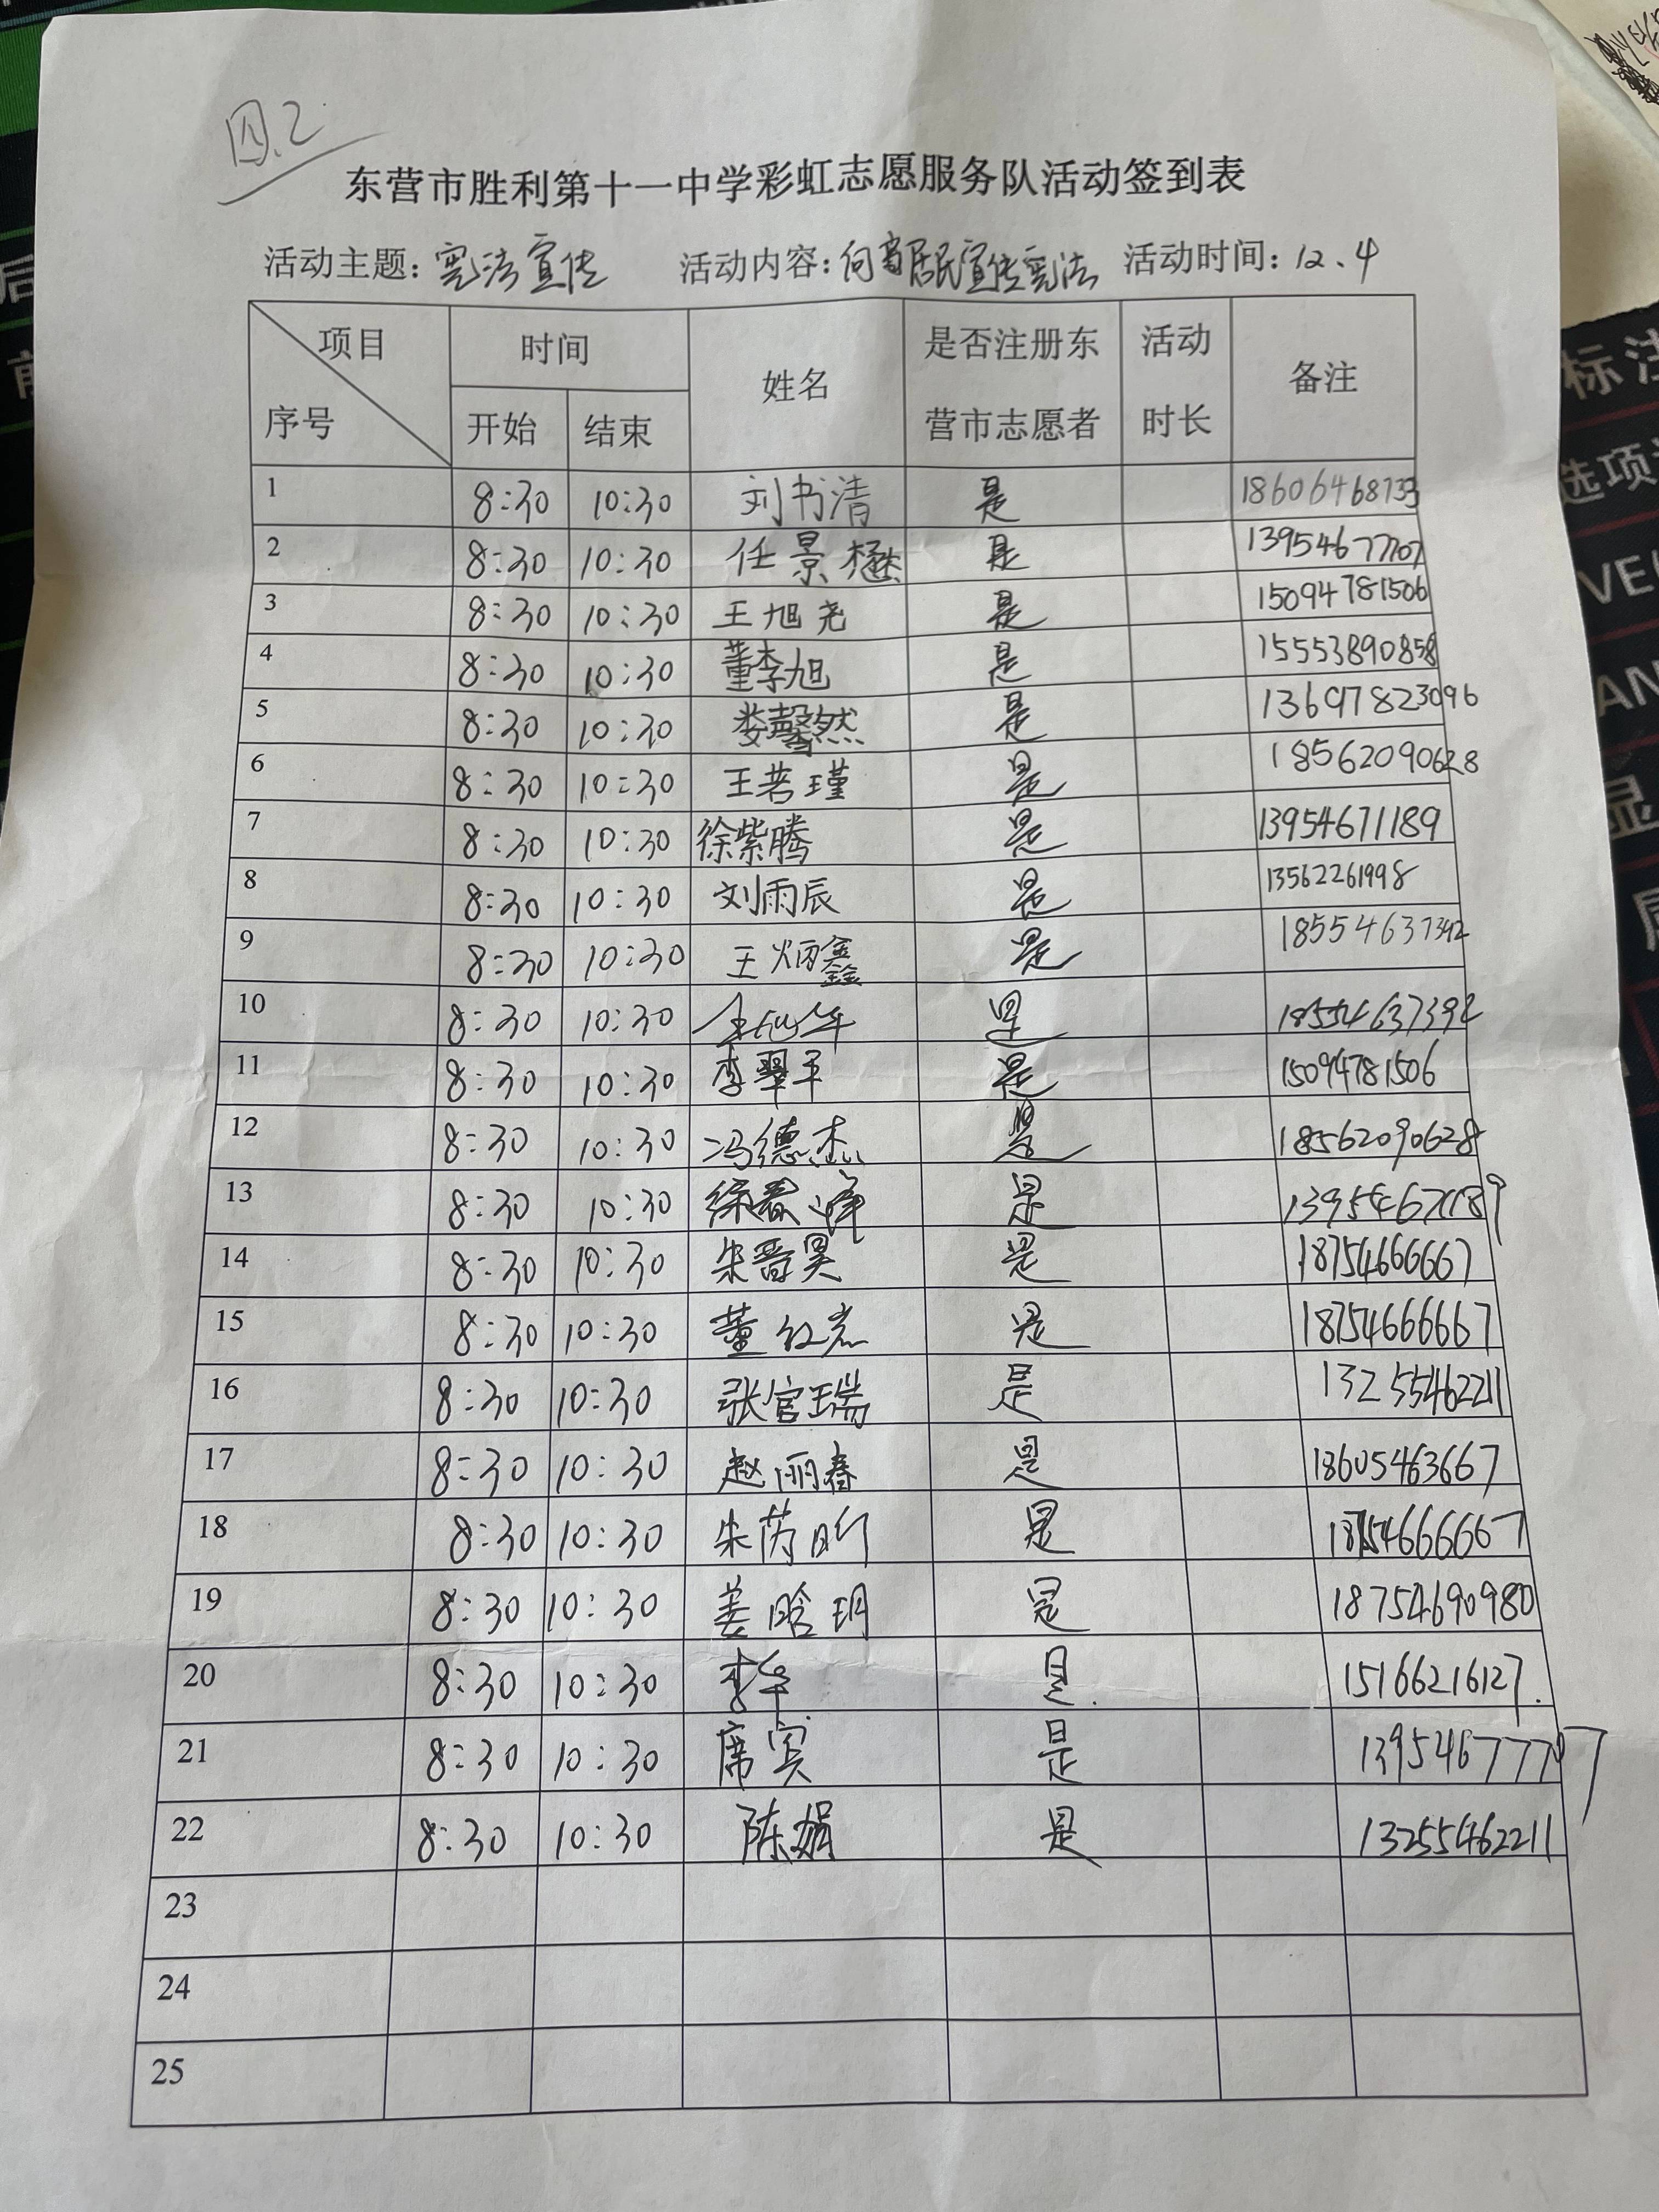 四.2
东营市胜利第十一中学彩虹志愿服务队活动签到表
活动主题：宪法宣传 活动内容：向居民宣传宪法 活动时间：12.4
项目 序号 时间 开始 结束 姓名 是否注册东营市志愿者 活动时长 备注
1 8:30 10:30 刘书清 是
2 8:30 10:30 任景 是
3 8:30 10:30 王旭尧 是 15094781506
4 8:30 10:30 董李旭 是 15553890858
5 8:30 10:30 娄馨然 是 13697823096
6 8:30 10:30 王若瑾 是 18562090628
7 8:30 10:30 徐紫腾 是 13954671189
8 8:30 10:30 刘雨辰 是 13562261998
9 8:30 10:30 王炳鑫 是 18554637392
10 8:30 10:30 是 18554637392
11 8:30 10:30 李翠平 是 15094781506
12 8:30 10:30 冯德杰 是 18562090628
13 8:30 10:30 徐春峰 是 13954671189
14 8:30 10:30 朱晋昊 是 18754666667
15 8:30 10:30 董红岩 是 18754666667
16 8:30 10:30 张官瑞 是 13255462211
17 8:30 10:30 赵丽春 是 18605463667
18 8:30 10:30 朱芮昕 是 18754666667
19 8:30 10:30 姜晗玥 是 18754690980
20 8:30 10:30 李华 是. 15166216127.
21 8:30 10:30 席宾 是 13954677707
22 8:30 10:30 陈娟 是 13255462211
23
24
25